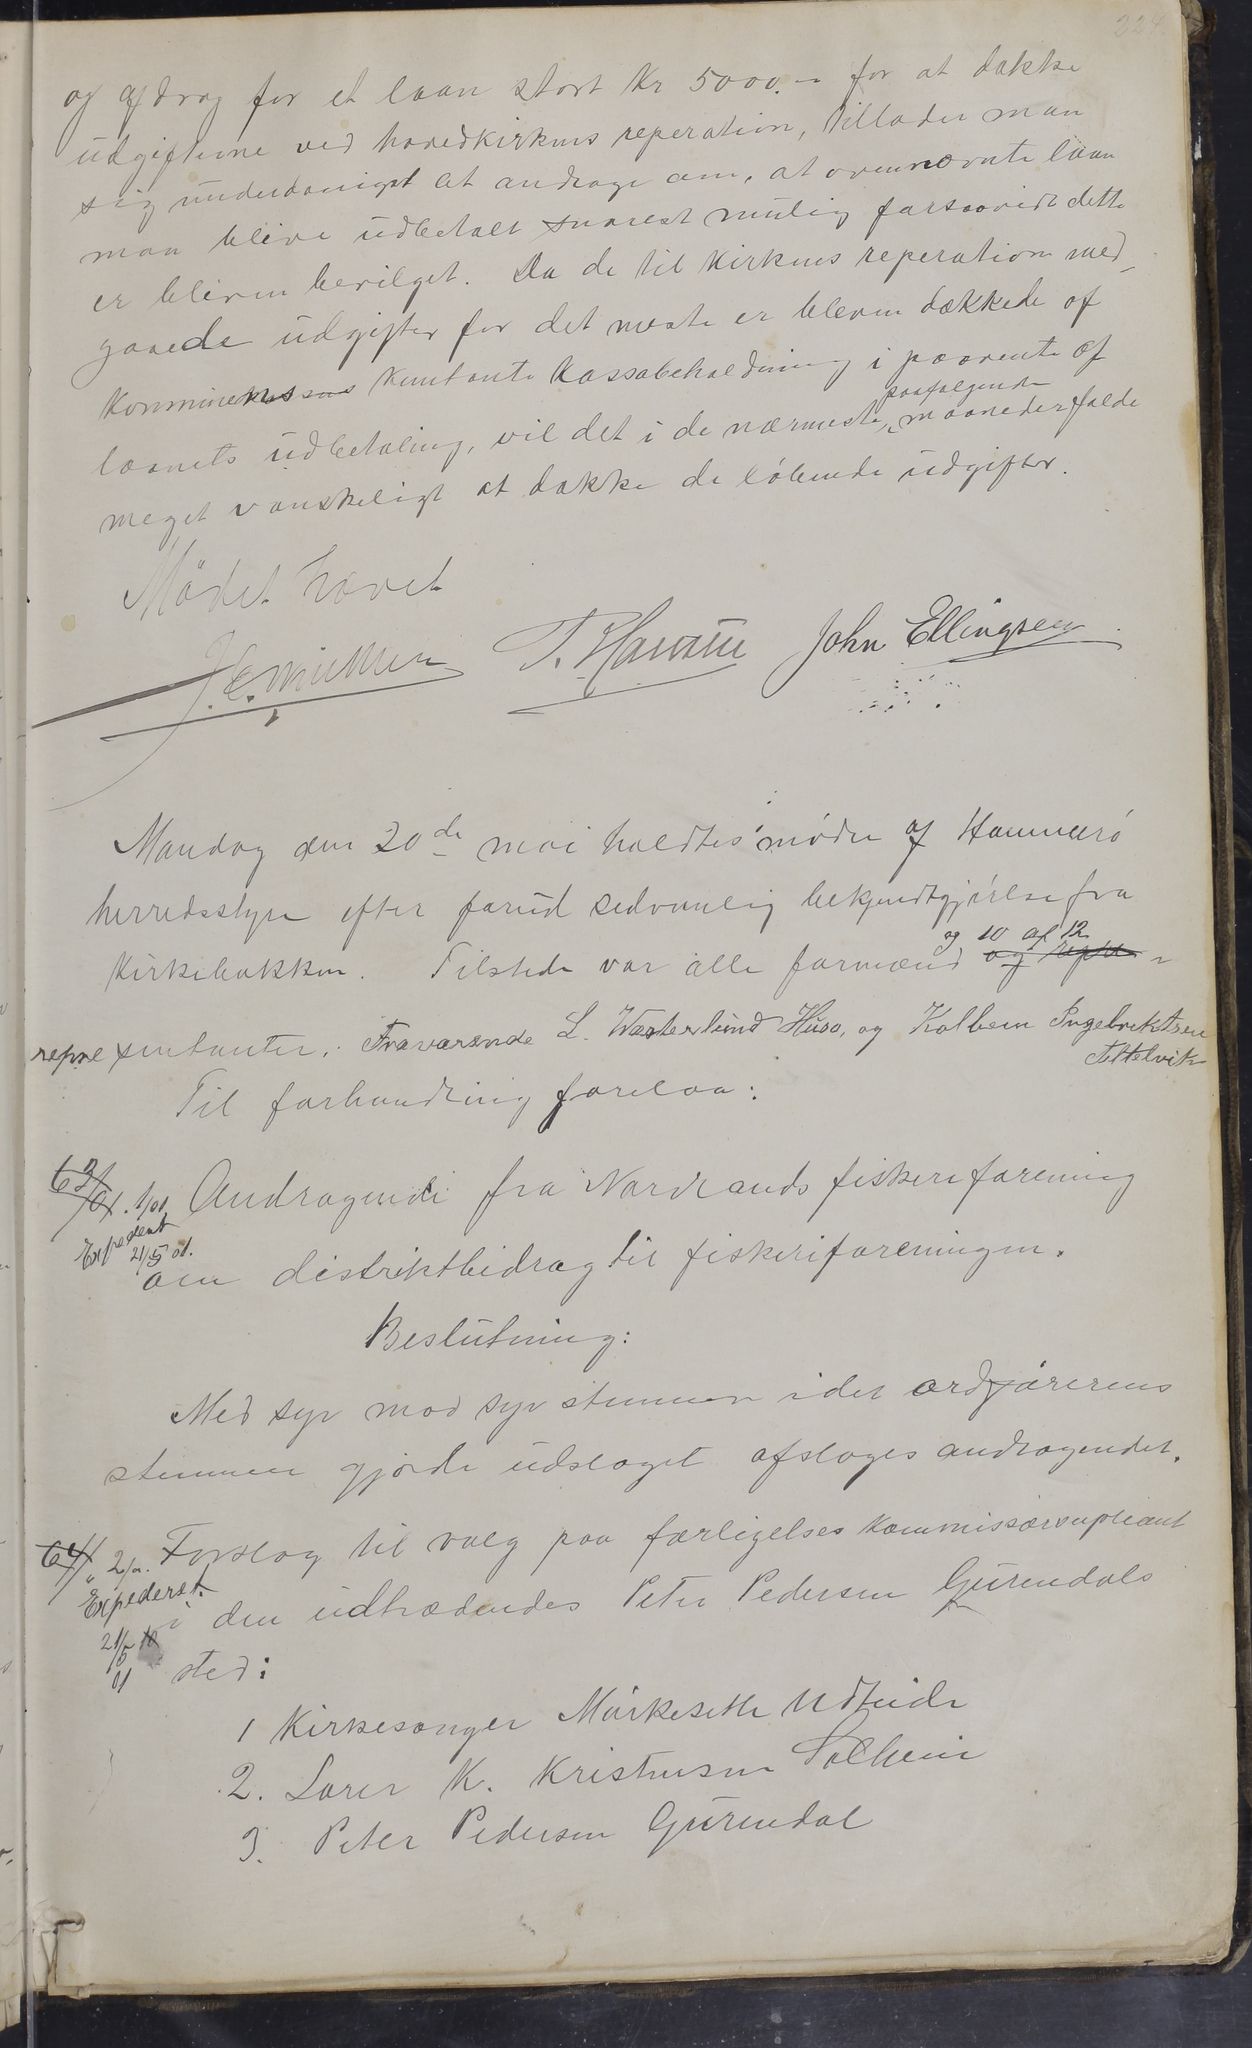 224.
og afdrag for et laan stort Kr 5000.- for at dække
udgifterne ved hovedkirkens reperation, tillader man
sig underdanigst at andrage om, at ovennævnte laan
maa blive udbetalt snarest mulig forsaavidt dette
er bleven bevilget. Da de til kirkens reperation med-
gaaede udgifter for det meste er bleven dækkede af
kommunens kontante kassabeholdning i paavente af
laanets udbetaling, vil det i de nærmeste paafølgende maaneder falde
meget vanskeligt at dække de løbende udgifter.
Mødet hævet
John Ellingsen
Mandag den 20de mai holdtes møde af Hammerö
herredsstyre efter forud sedvanlig bekjendtgjørelse fra
kirkebakken. Tilstede var alle formænd og 10 af 12
repræsentanter. Fraværende L. Westerlund Huso, og Kolbein Ingebriktsen
Tettelvik
Til forhandling forelaa:
63/01. 1/01 Andragende fra Nordlands fiskeriforening
Expederet 21/5 01.
om distriktbidrag til fiskeriforeningen.
Beslutning:
Med syv mod syv stemmer idet ordførerens
stemme gjorde udslaget afsloges andragendet.
64/ " 2/01. Forslag til valg paa forligelseskommissærsupleant
Expederet 21/5 01
i den udtrædendes Peter Pedersen Gurendals
sted:
1 Kirkesanger Mörkesette Udtuide
2. Lærer K. Kristensen Solheim
3. Peter Pedersen Gurendal